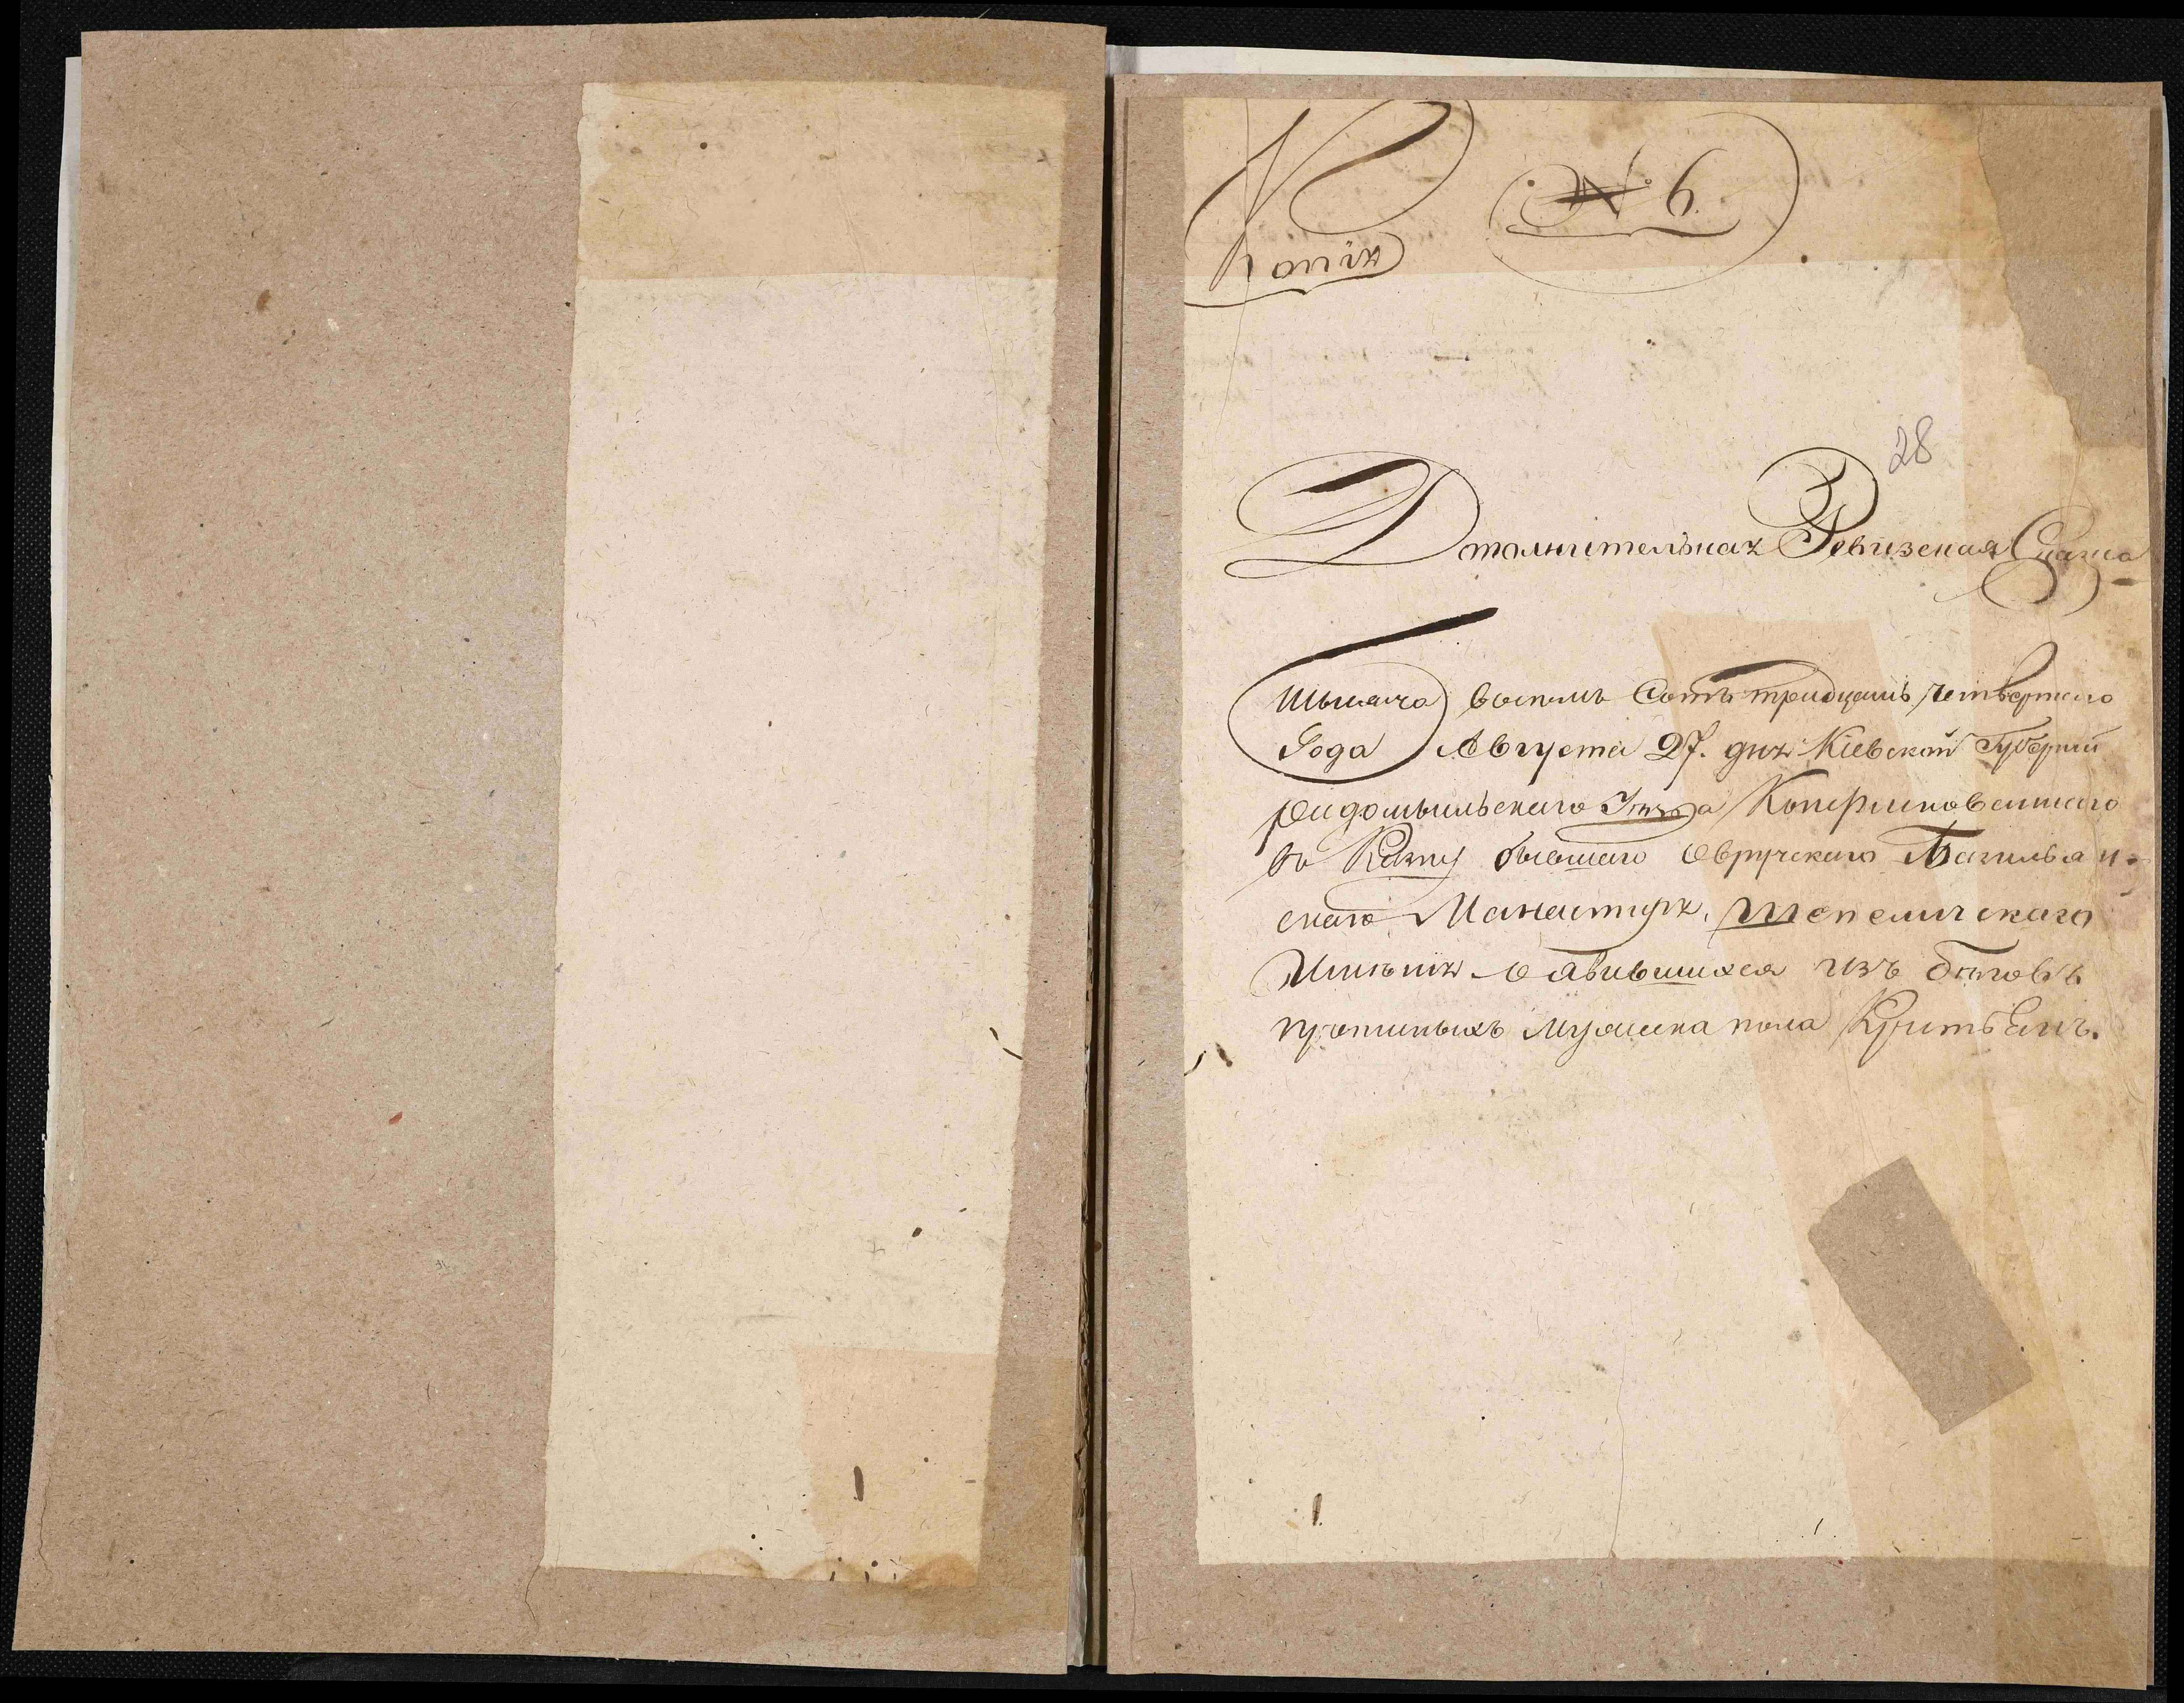 Копія
№ 6.
28
Дополнительная Ревизская Сказка
Тысяча восемь Сотъ тридцать четвертого
Года Августа 27. дня Кіевской Губерніи
радомысльского Уѣзда Конфискованного
въ Казну бывшаго Овручскаго Базильян-
скаго Манастиря, Шепеличскаго
Имѣнія О явившихся изъ бѣговъ
мужеска пола Крестьянъ.